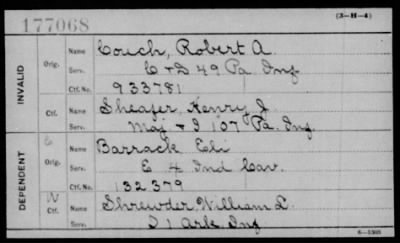 177068
(3-H-4)
INVALID
Orig.
Name Couch, Robert A.
Serv. C & D 49 Pa Inf
Ctf. No. 933781
Ctf.
Name Sheafer, Henry J.
Serv. Maj & I 107 Pa. Inf.
DEPENDENT
Orig.
Name Barrack Eli
Serv. E 4 Ind Cav.
Ctf. No. 132379
W
Ctf.
Name Shrewder, William L.
Serv. D 1 Ark Inf